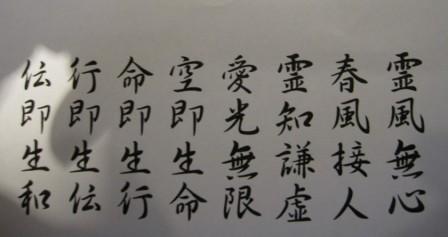 霊風無心
春風接人
霊知謙虚
愛光無限
空即生命
命即生行
行即生伝
伝即生和